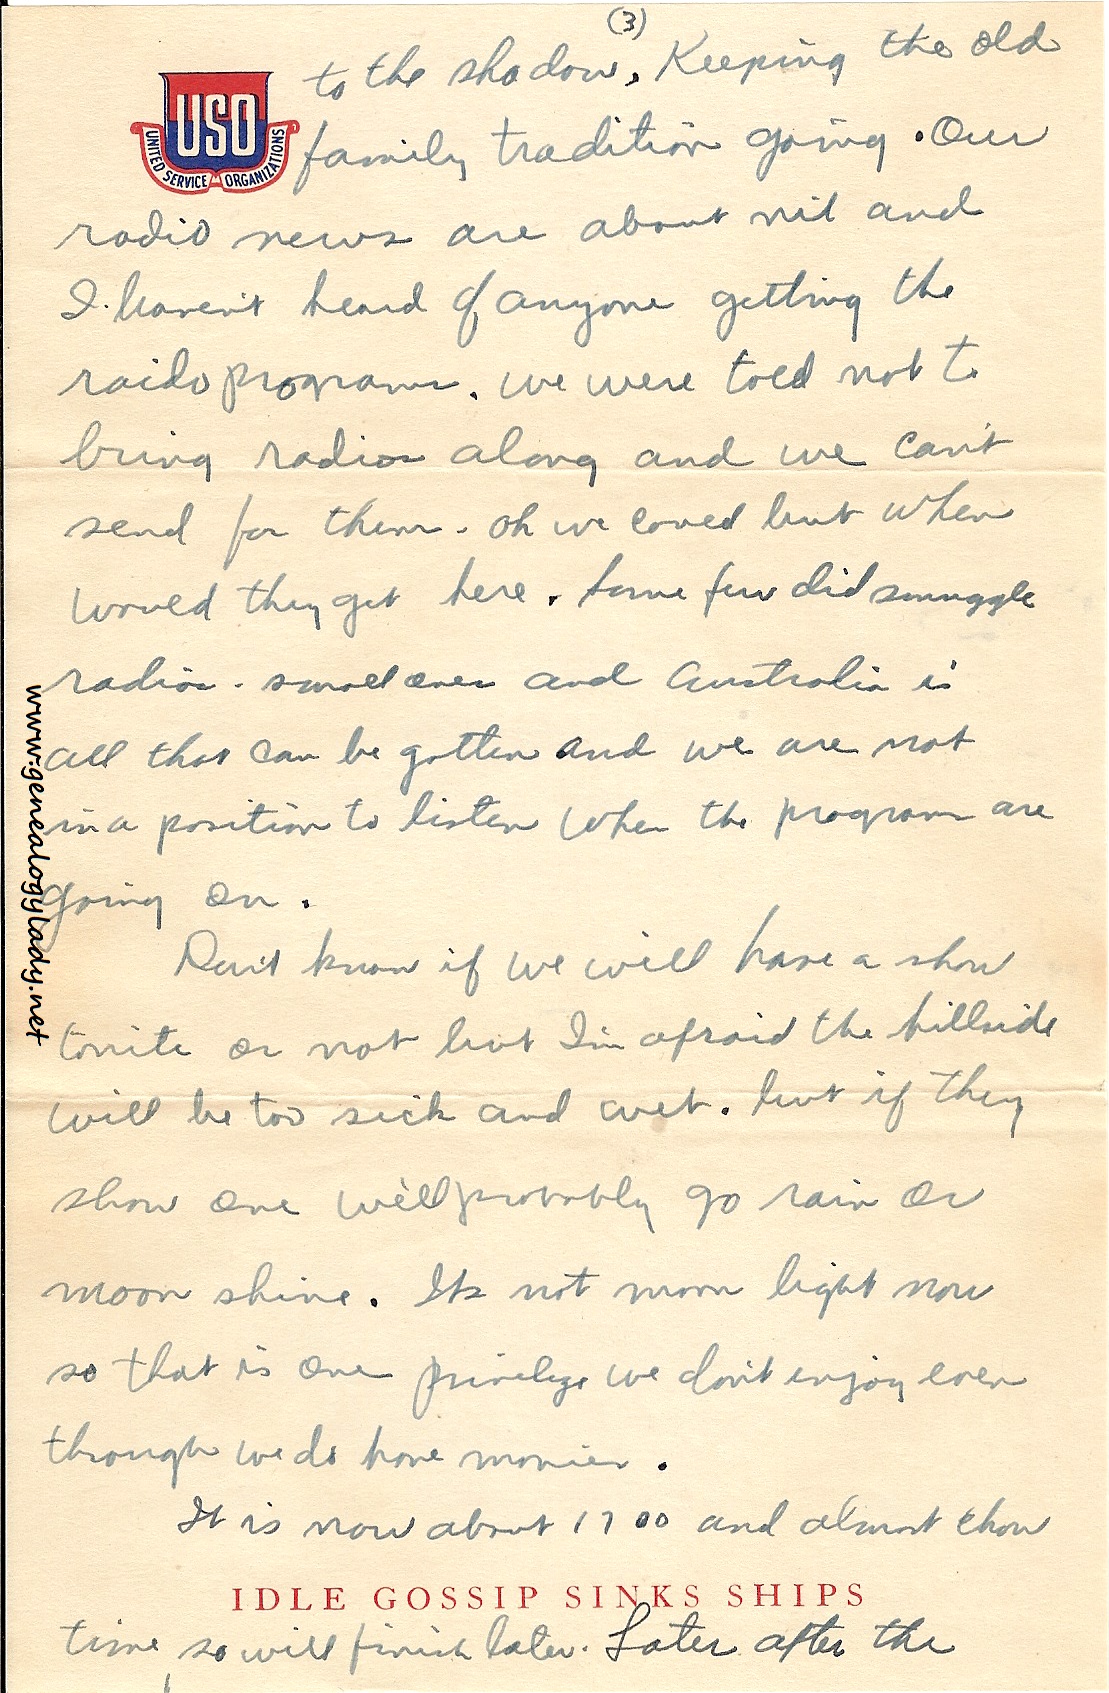 (3)
to the shadow, Keeping the old
USO
UNITED SERVICE ORGANIZATIONS
family tradition going. Our
radio news are about nil and
I haven't heard of anyone getting the
raido programs. we were told not to
bring radios along and we can't
send for them. oh we could but when
would they get here. Some few did smuggle
radios. small ones and Australia is
all that can be gotten and we are not
in a position to listen when the programs are
going on.
Don't know if we will have a show
tonite or not but I'm afraid the hillside
will be too slick and wet. but if they
show one we'll probably go rain or
moon shine. Its not moon light now
so that is one privilege we don't enjoy even
through we do have movies.
It is now about 1700 and almost chow
IDLE GOSSIP SINKS SHIPS
time, so will finish later. Later after the
www.genealogylady.net